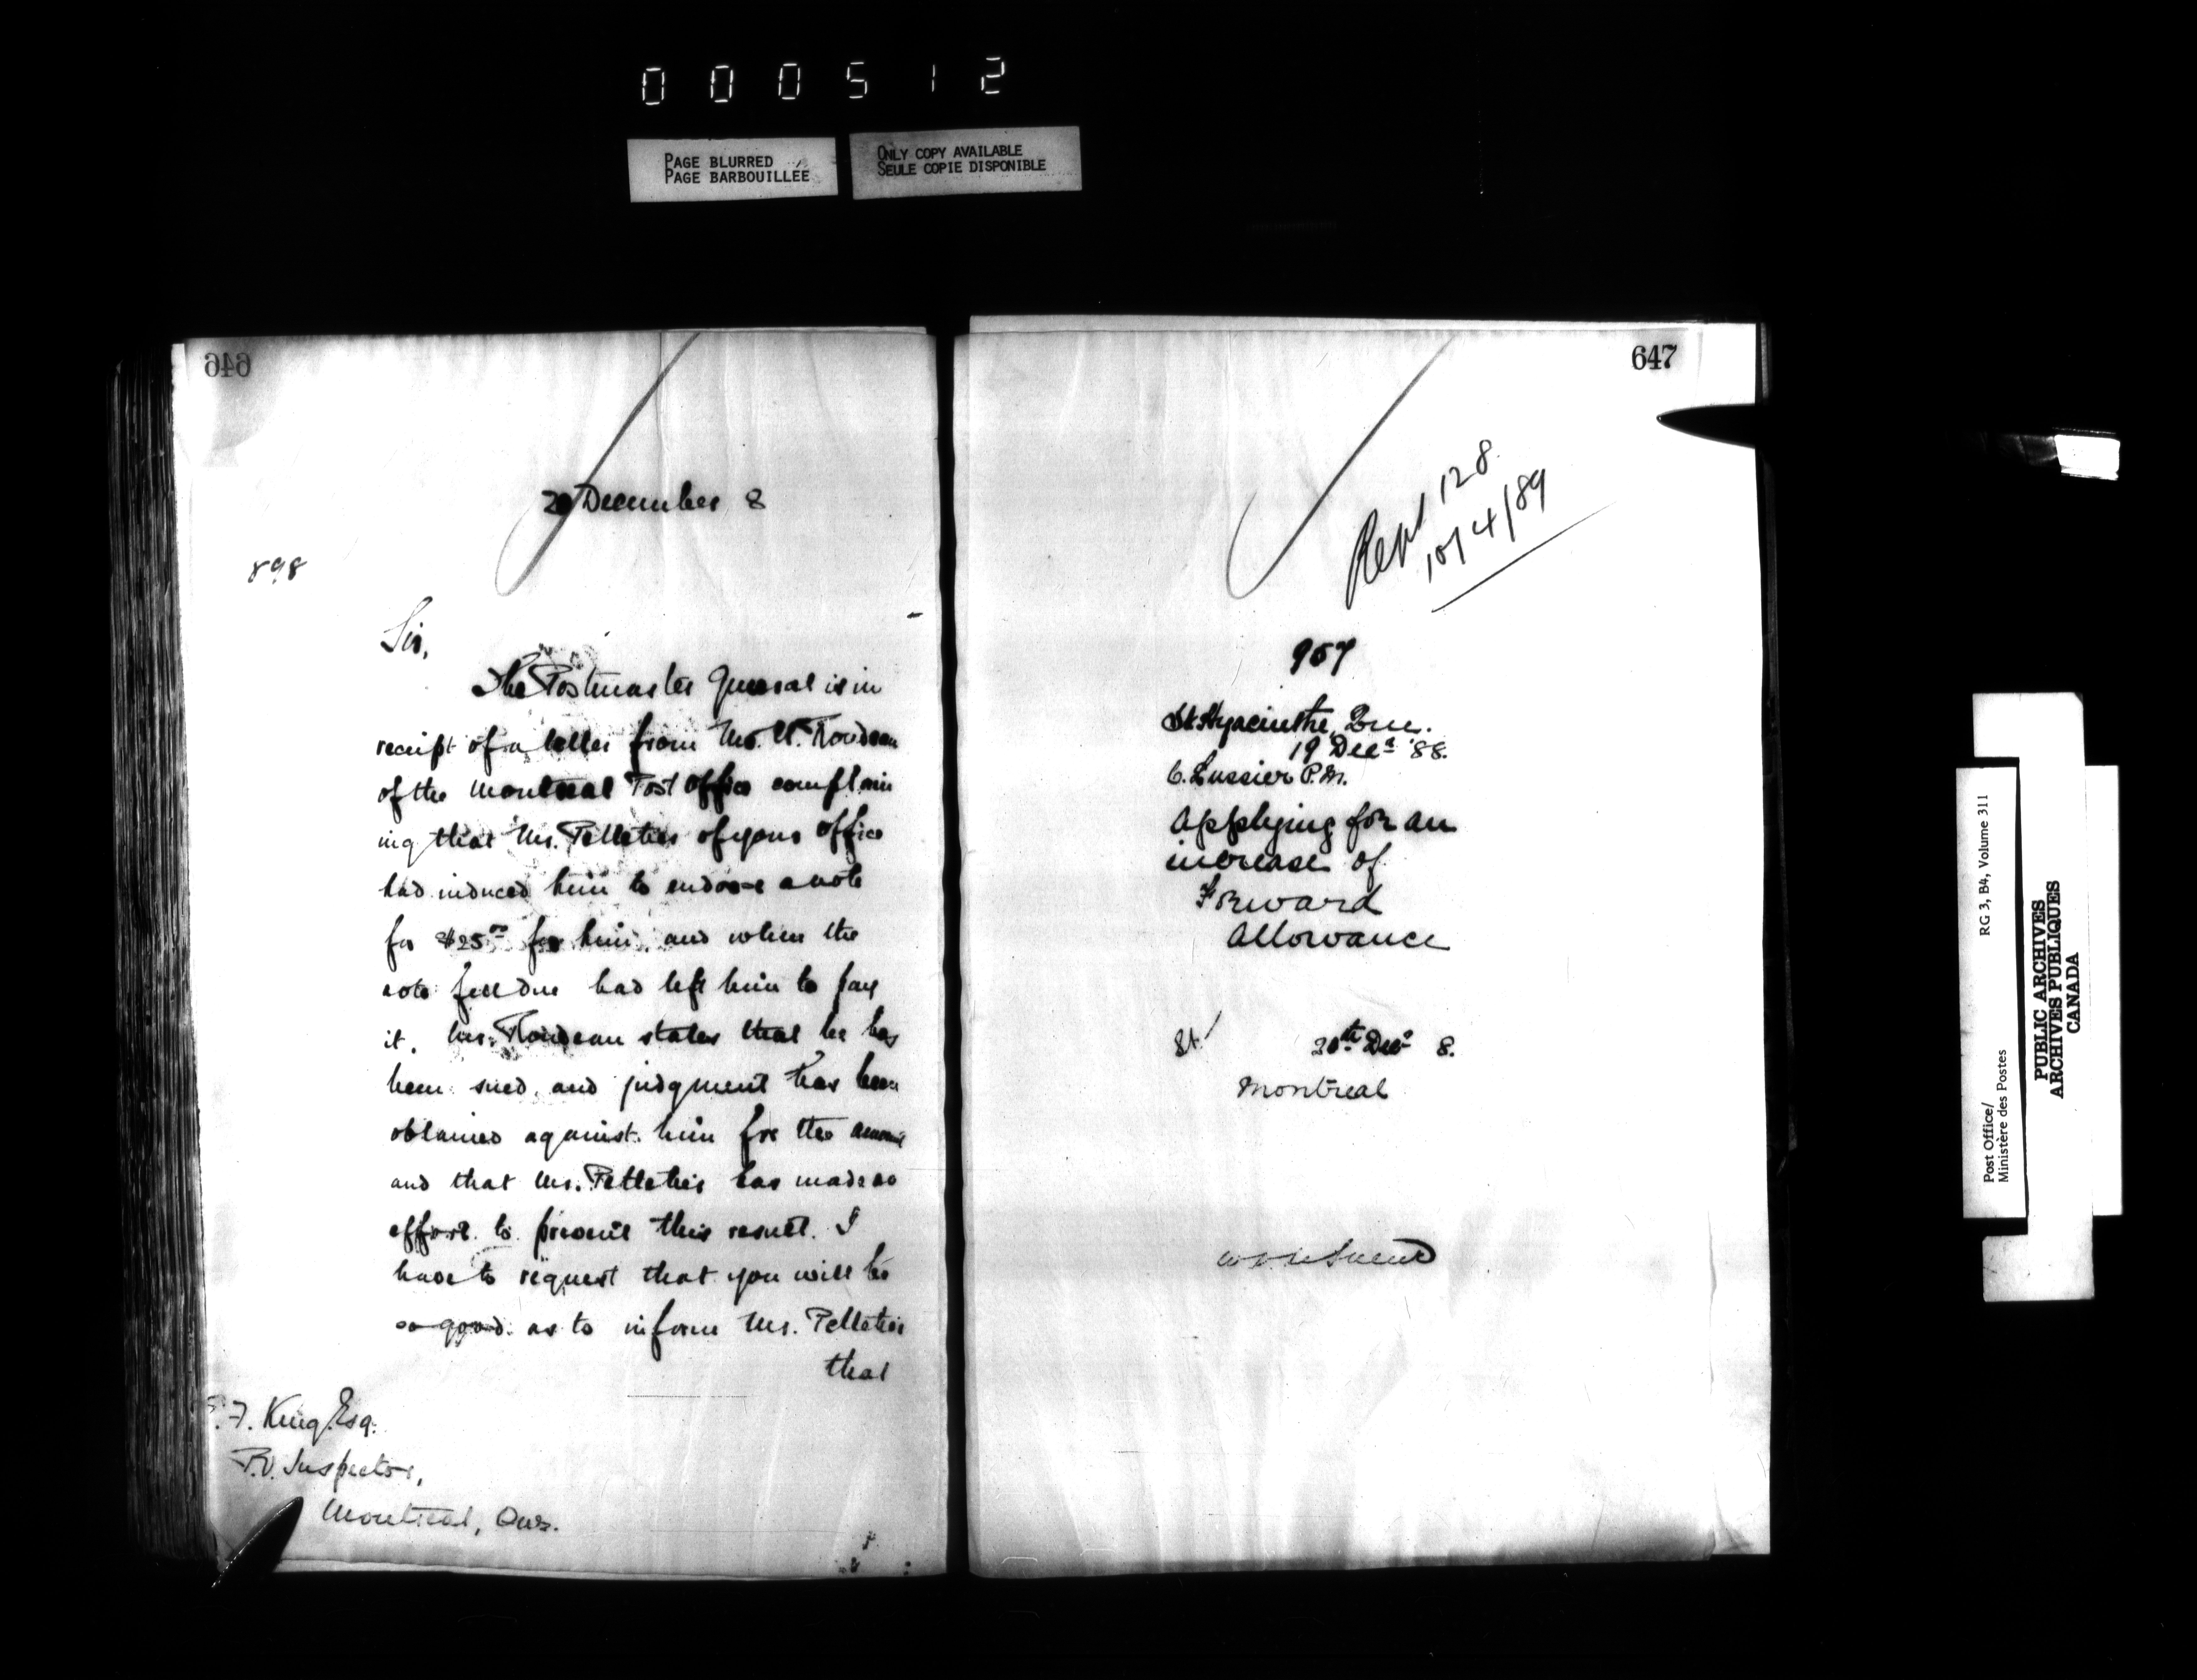 000512
PAGE BLURRED
PAGE BARBOUILLÉE
ONLY COPY AVAILABLE
SEULE COPIE DISPONIBLE
646
20 December 8
898
Sir,
The Postmaster General is in
receipt of a letter from Mr. Rondeau
of the Montreal Post Office complain
ing that Mr. Pelletier of your office
had induced him to endorse a note
for $25.00 for him, and when the
note fell due had left him to pay
it. Mr. Rondeau states that he has
been sued, and judgment has been
obtained against him for the amount
and that Mr. Pelletier has made no
effort to prevent this result. I
have to request that you will be
so good as to inform Mr. Pelletier
that
F. King Esq.
P.O. Inspector,
Montreal, Que.
647
Rept 128
10/4/89
957
St. Hyacinthe, Que.
19 Decr '88.
C. Lussier P.M.
Applying for an
increase of
Forward
Allowance
St.
20th Decr 8.
Montreal
Post Office/
Ministère des Postes
RG 3, B4, Volume 311
PUBLIC ARCHIVES
ARCHIVES PUBLIQUES
CANADA